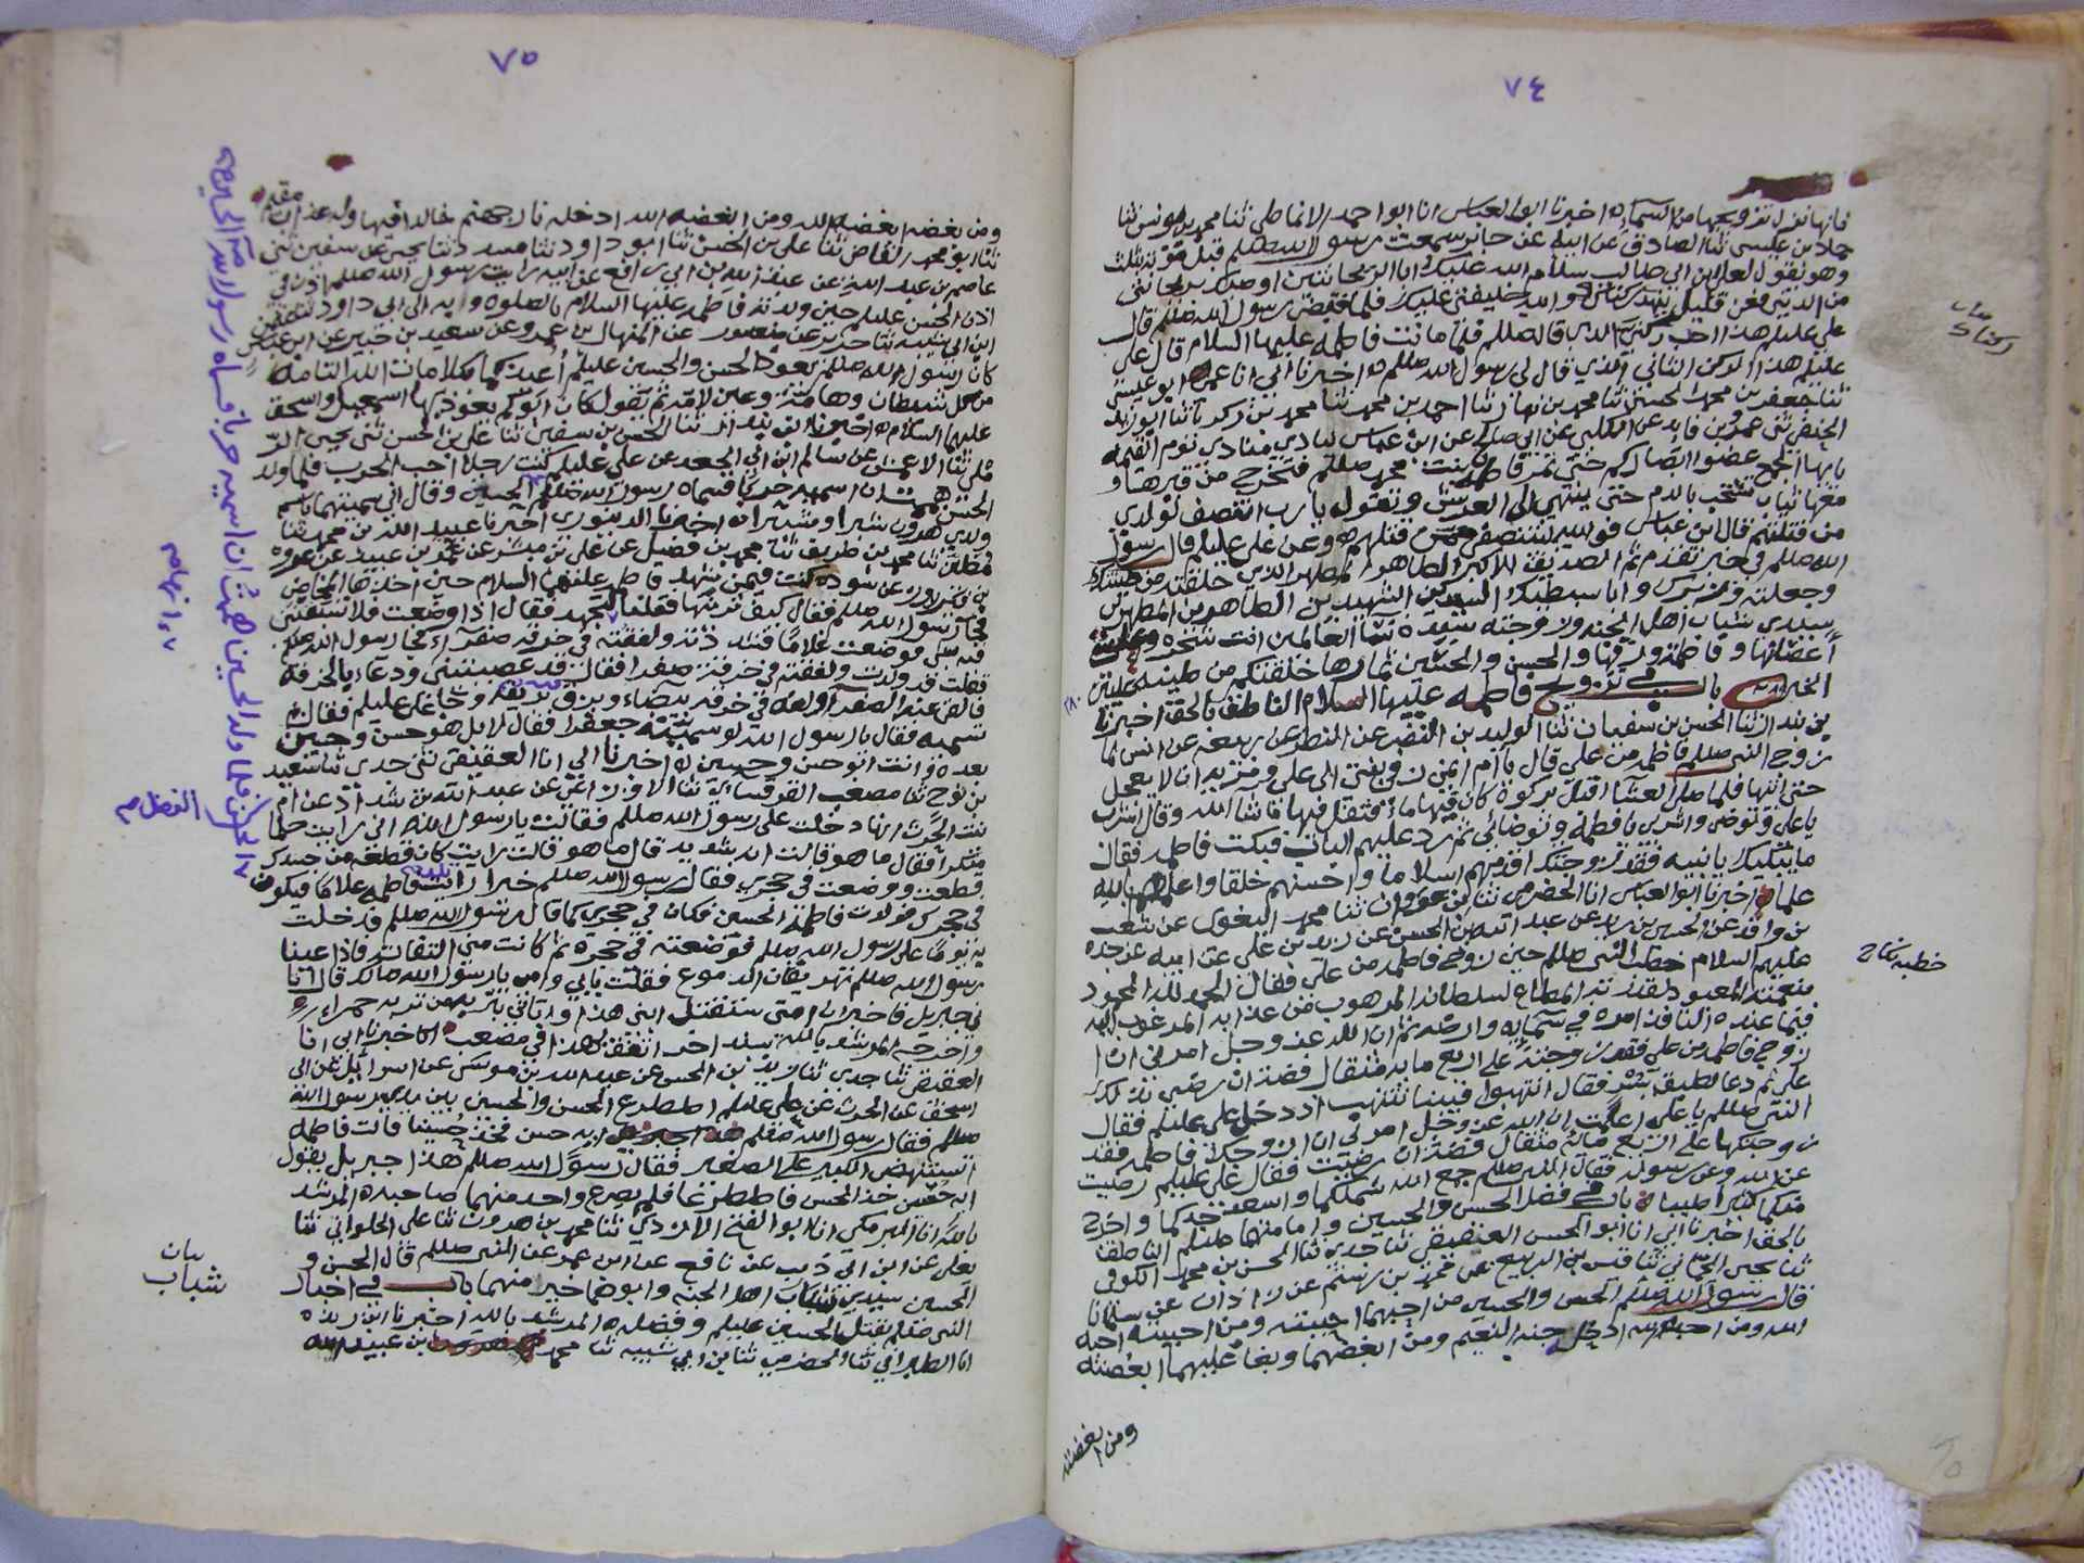 ٧٤
فانها نزل تزويجها من السماء اخبرنا ابو العباس انا ابو احمد الانماطي ثنا محمد بن يونس ثنا
حماد بن عيسى ثنا الصادق عن ابيه عن جابر سمعت رسول الله صللم قبل موته بثلث
وهو يقول لعلي بن ابي طالب سلام الله عليك ابا الريحانتين اوصيك بريحانتي
من الدنيا فعن قليل ينهد ركناك والله خليفتي عليك فلما قبض رسول الله صللم قال
علي عليلم هذا احد ركني الذي قال صللم فلما ماتت فاطمه عليها السلام قال علي
عليلم هذا الركن الثاني الذي قال لي رسول الله صللم اخبرنا ابي انا عمي ابو عيسى
ثنا جعفر بن محمد الحسني ثنا محمد بن نهار ثنا احمد بن محمد ثنا محمد بن زكريا ثنا ابو زيد
الحنفي ثنى عمرو بن فايد عن الكلبي عن ابي صالح عن ابن عباس ينادي منادي يوم القيمه
يا ايها الجمع غضوا ابصاركم حتى تمر فاطمه بنت محمد صللم فتخرج من قبرها و
معها ثياب تشخب بالدم حتى ينتهي الى العرش وتقول يا رب انتصف لولدي
من قتلتهم قال ابن عباس فوالله لينتصفن من قتلهم وعن علي عليلم قال رسول
الله صللم في خبر تقدم ثم الصديقه الاكبر الطاهر المطهر الذي خلقته من طينتك
وجعلته وانا سبطيك السيدين الشهيدين الطاهرين المطهرين
سيدي شباب اهل الجنه وزوجته سيده نسا العالمين انت شجره وعلي
اغصانها وفاطمه ورقها والحسن والحسين ثمارها خلقتكم من طينه عليين
الخبر باب في تزويج فاطمه عليها السلام الناطق بالحق اخبرنا
بن بندار ثنا الحسن بن سفيان ثنا الوليد بن النضر عن ربيعه عن انس لما
زوج النبي صللم فاطمه من علي قال يا ام ايمن زفي ابنتي الى علي ومريه ان لا يعجل
حتى اتيها فلما صلى العشا اقبل بركوة كان فيها ماء فتفل فيها ما شا الله وقال اشرب
يا علي وتوضى واشربي يا فاطمه وتوضائي ثم رد عليهم الباب فبكت فاطمه فقال
ما يبكيك يا بنيه فقد زوجتك اقدمهم اسلاما واحسنهم خلقا واعلمهم بالله
علما اخبرنا ابو العباس انا الحضرمي ثنا ثنا محمد البغوي عن شعب
بن واقد عن الحسين بن زيد عن عبد الله بن الحسن عن زيد بن علي عن ابيه عن جده
عليهم السلام خطب النبي صللم حين زوج فاطمه من علي فقال الحمد لله المحمود
بنعمته المعبود بقدرته المطاع لسلطانه المرهوب من عذابه المرغوب اليه
فيما عنده النافذ امره في سمايه وارضه ثم ان الله عز وجل امرني ان
ازوج فاطمه من علي فقد زوجته على اربع مايه مثقال فضة ان رضي بذلك
علي ثم دعا بطبق بسر فقال انتهبوا فبينا ننتهب اذ دخل علي عليلم فقال
النبي صللم يا علي اعلمت ان الله عز وجل امرني ان ازوجك فاطمه فقد
زوجتكها على اربع مائة مثقال فضة ان رضيت فقال علي عليلم رضيت
عن الله وعن رسوله فقال النبي صللم جمع الله شملكما واسعد جدكما واخرج
منكما كثيرا طيبا باب في فضل الحسن والحسين وامامتهما عليلم الناطق
بالحق اخبرنا ابي انا ابو الحسن العقيقي ثنا جدي ثنا الحسن بن محمد الكوفي
ثنا يحيى الحماني ثنا قيس بن الربيع عن محمد بن رستم عن زاذان عن سلمان
قال رسول الله صللم الحسن والحسين من احبهما احببته ومن احببته احبه
الله ومن احبه الله ادخله جنه النعيم ومن ابغضهما وبغا عليهما ابغضته
ومن ابغضته
بيان
ركناك
خطبه نكاح
٧٥
ومن ابغضه ابغضه الله ومن ابغضه الله ادخله نار جهنم خالدا فيها وله عذاب مقيم
ثنا ابو محمد القاضي ثنا علي بن الحسن ثنا ابو داود ثنا مسدد ثنا يحيى عن سفين ثنى
عاصم بن عبد الله عن عبيد الله بن ابي رافع عن ابيه رايت رسول الله صللم اذن في
اذن الحسن عليلم حين ولدته فاطمه عليها السلام بالصلوه وبه الى ابي داود ثنا عثمن
ابن ابي شيبه ثنا جرير عن منصور عن المنهال بن عمرو عن سعيد بن جبير عن ابن عباس
كان رسول الله صللم يعوذ الحسن والحسين عليلم اعيذكما بكلامات الله التامه
من كل شيطان وهامة وعين لامه ثم يقول كان ابوكم يعوذ بها اسمعيل واسحق
عليهما السلام اخبرنا ابن بندار ثنا الحسن بن سفين ثنا علي بن الحسن ثنى يحيى الر
ملي ثنا الاعمش عن سالم ابن ابي الجعد عن علي عليلم كنت رجلا احب الحرب فلما ولد
الحسن هممت ان اسميه حربا فسماه رسول الله صللم الحسين وقال اني سميتهما باسم
ولدي هرون شبرا وشبيرا اخبرنا الدينوري اخبرنا عبيد الله بن محمد ثنا
مطين ثنا محمد بن طريف ثنا محمد بن فضيل عن علي بن ميسر عن عمر بن عبيد عن عروه
بن فيروز عن سوده كنت فيمن شهد فاطمه عليها السلام حين اخذها المخاض
فجا رسول الله صللم فقال كيف ترينها فقلنا لتجهد فقال اذا وضعت فلا تسبقني
فيه بشي فوضعت غلاما فسررته ولففته في خرقه صفراء فجا رسول الله صللم
فقلت قد ولدت ولففته في خرقة صفرا فقال قد عصيتيني ودعاء بالخرقه
فالقى عنه الصفرآ ولفه في خرقه بيضاء وبزق بريقه وجا علي عليلم فقال
سميته فقال يا رسول الله لو سميته جعفرا فقال لا بل هو حسن وحسين
بعده وانت ابو حسن وحسين اخبرنا ابي انا العقيقي ثنى جدي ثنا سعيد
بن نوح ثنا مصعب القرقساني ثنا الاوزاعي عن عبد الله بن شداد عن ام
بنت الحرث انها دخلت على رسول الله صللم فقالت يا رسول الله اني رايت حلما
منكرا فقال ما هو قالت انه شديد قال ما هو قالت رايت كان قطعه من جسدك
قطعت ووضعت في حجري فقال رسول الله صللم خيرا رايت تلد فاطمه غلاما فيكون
في حجرك فولدت فاطمه الحسين فكان في حجري كما قال رسول الله صللم فدخلت
به يوما على رسول الله صللم فوضعته في حجره ثم كانت مني التفاتة فاذا عينا
رسول الله صللم تهريقان الدموع فقلت بابي وامي يا رسول الله مالك قال اتا
ني جبريل فاخبرني ان امتي ستقتل ابني هذا واتاني بتربه من تربه حمراء
واخرجه المرشد بالله بسند اخر اتفق لهذا في مصعب اخبرنا ابي انا
العقيقي ثنا جدي ثنا زيد بن الحسن عن عبيد الله بن موسى عن اسرائيل عن ابي
اسحق عن الحرث عن علي عليلم اصطرع الحسن والحسين بين يدي رسول الله
صللم فقال رسول الله صللم ايه حسن فخذ حسينا قالت فاطمه
اتستنهض الكبير على الصغير فقال رسول الله صللم هذا جبريل يقول
ايه حسين خذ الحسن فاصطرعا فلم يصرع واحد منهما صاحبه المرشد
بالله انا البرمكي انا ابو الفتح الازدي ثنا محمد بن هرون ثنا علي الحلواني ثنا
يعلى عن ابن ابي ذيب عن نافع عن ابن عمر عن النبي صللم قال الحسن و
الحسين سيدي شباب اهل الجنه وابوهما خير منهما باب في اخبار
النبي صللم بقتل الحسين عليلم وفضله المرشد بالله اخبرنا ابن ريذه
انا الطبراني ثنا الحضرمي ثنا بن ابي شيبه ثنا محمد بن عبيد الله
الحسن فلما ولد الحسين هممت ان اسميه حربا فسماه رسول الله
الفضل
بيان
شباب